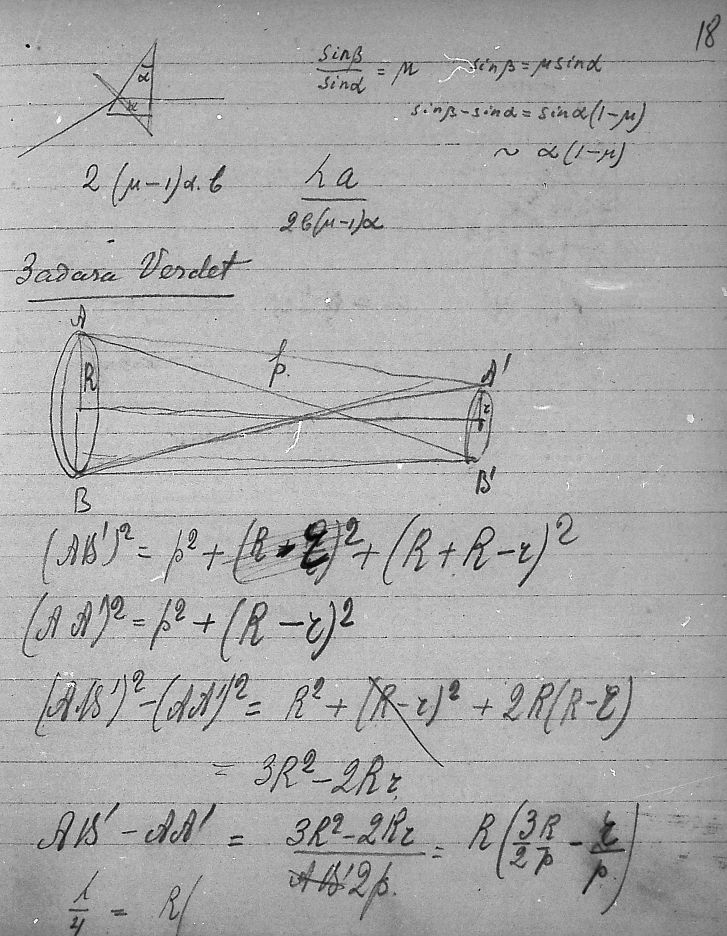 18
sinβ/sinα = μ   sinβ = μ sinα
sinβ - sinα = sinα(1-μ)
~ α(1-μ)
2(μ-1)α.b   λa/2b(μ-1)α
α
Задача Verdet
A
R
p.
A'
r
B
B'
(AB')² = p² + (R + R - r)²
(AA')² = p² + (R - r)²
(AB')² - (AA')² = R² + (R - r)² + 2R(R - r)
= 3R² - 2Rr
AB' - AA' = 3R² - 2Rr/2p. = R(3/2 R/p - r/p)
λ/4 = R(